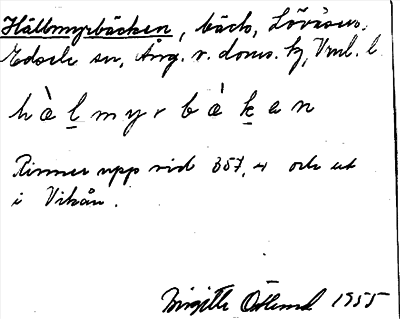 Hällmyrbäcken, bäck, Lövåsen,
Edsele sn, Ång. v. doms. hg, Vnl. l.
h à l m y r b à k e n
Rinner upp vid 357,4 och ut
i Vikån.
Birgitta Östlund 1955